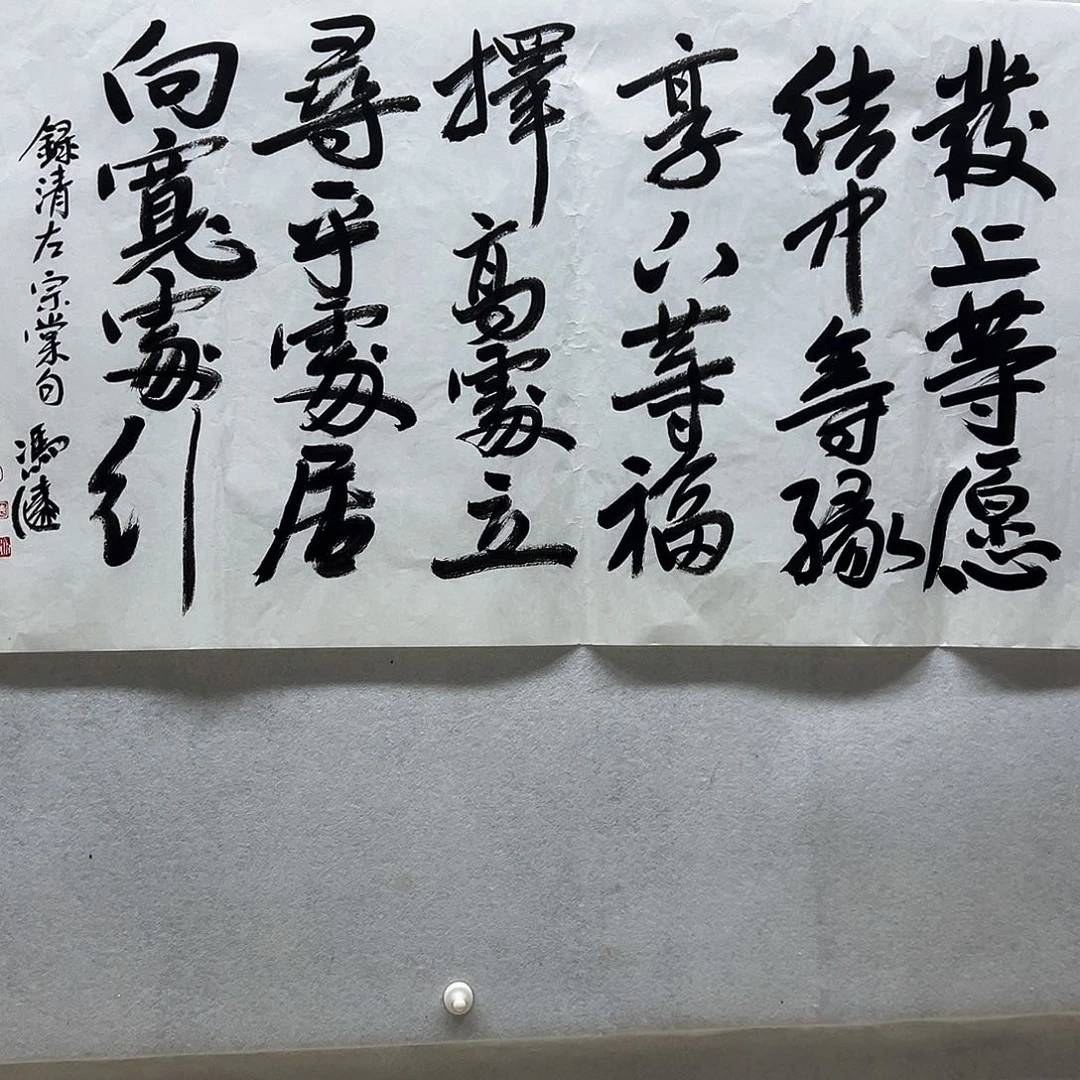 發上等愿
结中等缘
享下等福
擇高處立
尋平處居
向寬處行
録清左宗棠句
馮遠